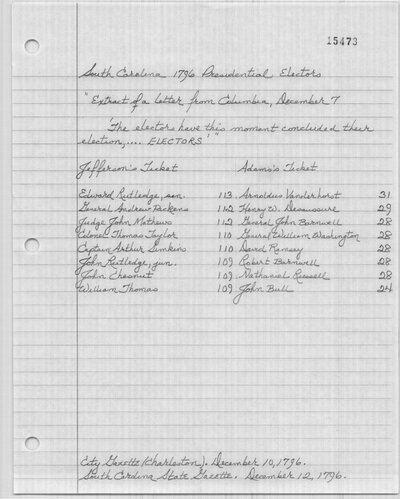 15473
South Carolina 1796 Presidential Electors
"Extract of a letter from Columbia, December 7
'The electors have this moment concluded their
election,.... ELECTORS' "
Jefferson's Ticket Adams's Ticket
Edward Rutledge, sen. 113 Arnoldus Vanderhorst 31
General Andrew Pickens 112 Henry W. Dessaussure 29
Judge John Mathews 112 General John Barnwell 28
Colonel Thomas Taylor 110 General William Washington 28
Captain Arthur Simkins 110 David Ramsey 28
John Rutledge, jun. 109 Robert Barnwell 28
John Chesnut 109 Nathaniel Russell 28
William Thomas 109 John Bull 24
City Gazette (Charleston). December 10, 1796.
South Carolina State Gazette. December 12, 1796.